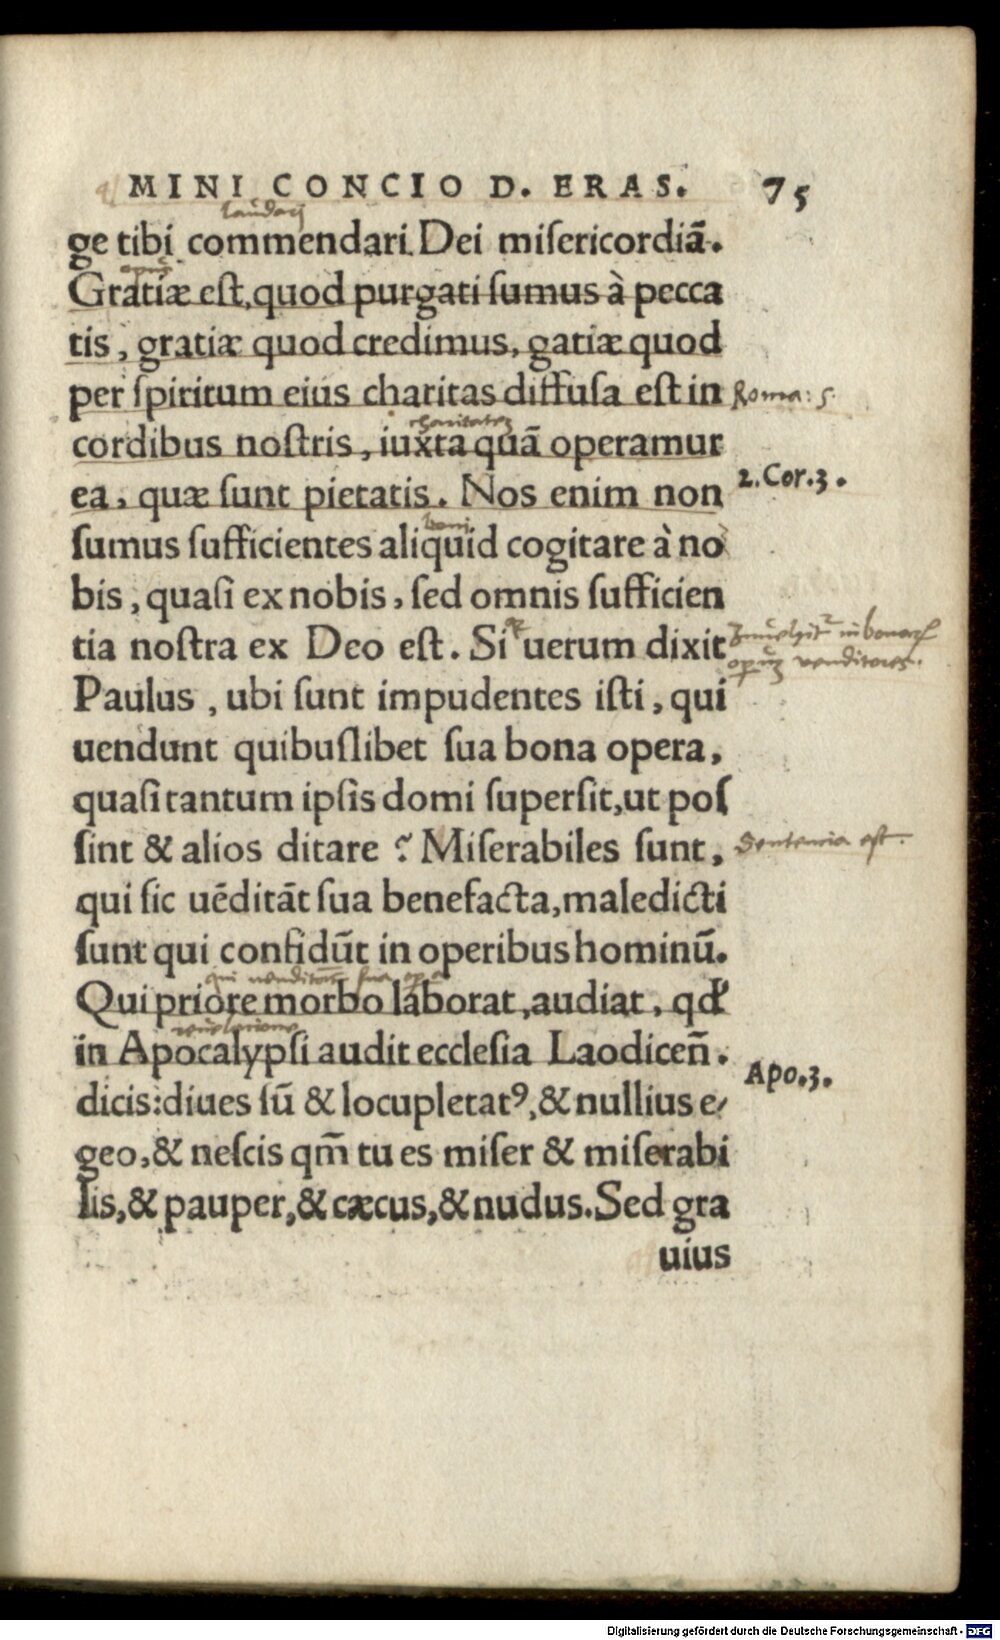 MINI CONCIO D. ERAS. 75
laudari
ge tibi commendari Dei miſericordiã.
opus
Gratiæ eſt, quod purgati ſumus à pecca
tis, gratiæ quod credimus, gatiæ quod
per ſpiritum eius charitas diffuſa eſt in
Roma: 5.
charitatem
cordibus noſtris, iuxta quã operamur
ea, quæ ſunt pietatis. Nos enim non
2. Cor. 3.
boni
ſumus ſufficientes aliquid cogitare à no
bis, quaſi ex nobis, ſed omnis ſufficien
tia noſtra ex Deo eſt. Si uerum dixit
in bonorum
venditores.
Paulus, ubi ſunt impudentes iſti, qui
uendunt quibuſlibet ſua bona opera,
quaſi tantum ipſis domi ſuperſit, ut poſ
ſint & alios ditare ? Miſerabiles ſunt,
Sentencia est.
qui ſic uẽditãt ſua benefacta, maledicti
ſunt qui confidũt in operibus hominũ.
qui venditant sua opera
Qui priore morbo laborat, audiat, qđ
in Apocalypſi audit eccleſia Laodiceñ.
Apo. 3.
dicis: diues ſũ & locupletatꝰ, & nullius e/
geo, & neſcis qm̃ tu es miſer & miſerabi
lis, & pauper, & cæcus, & nudus. Sed gra
uius
Digitalisierung gefördert durch die Deutsche Forschungsgemeinschaft - DFG